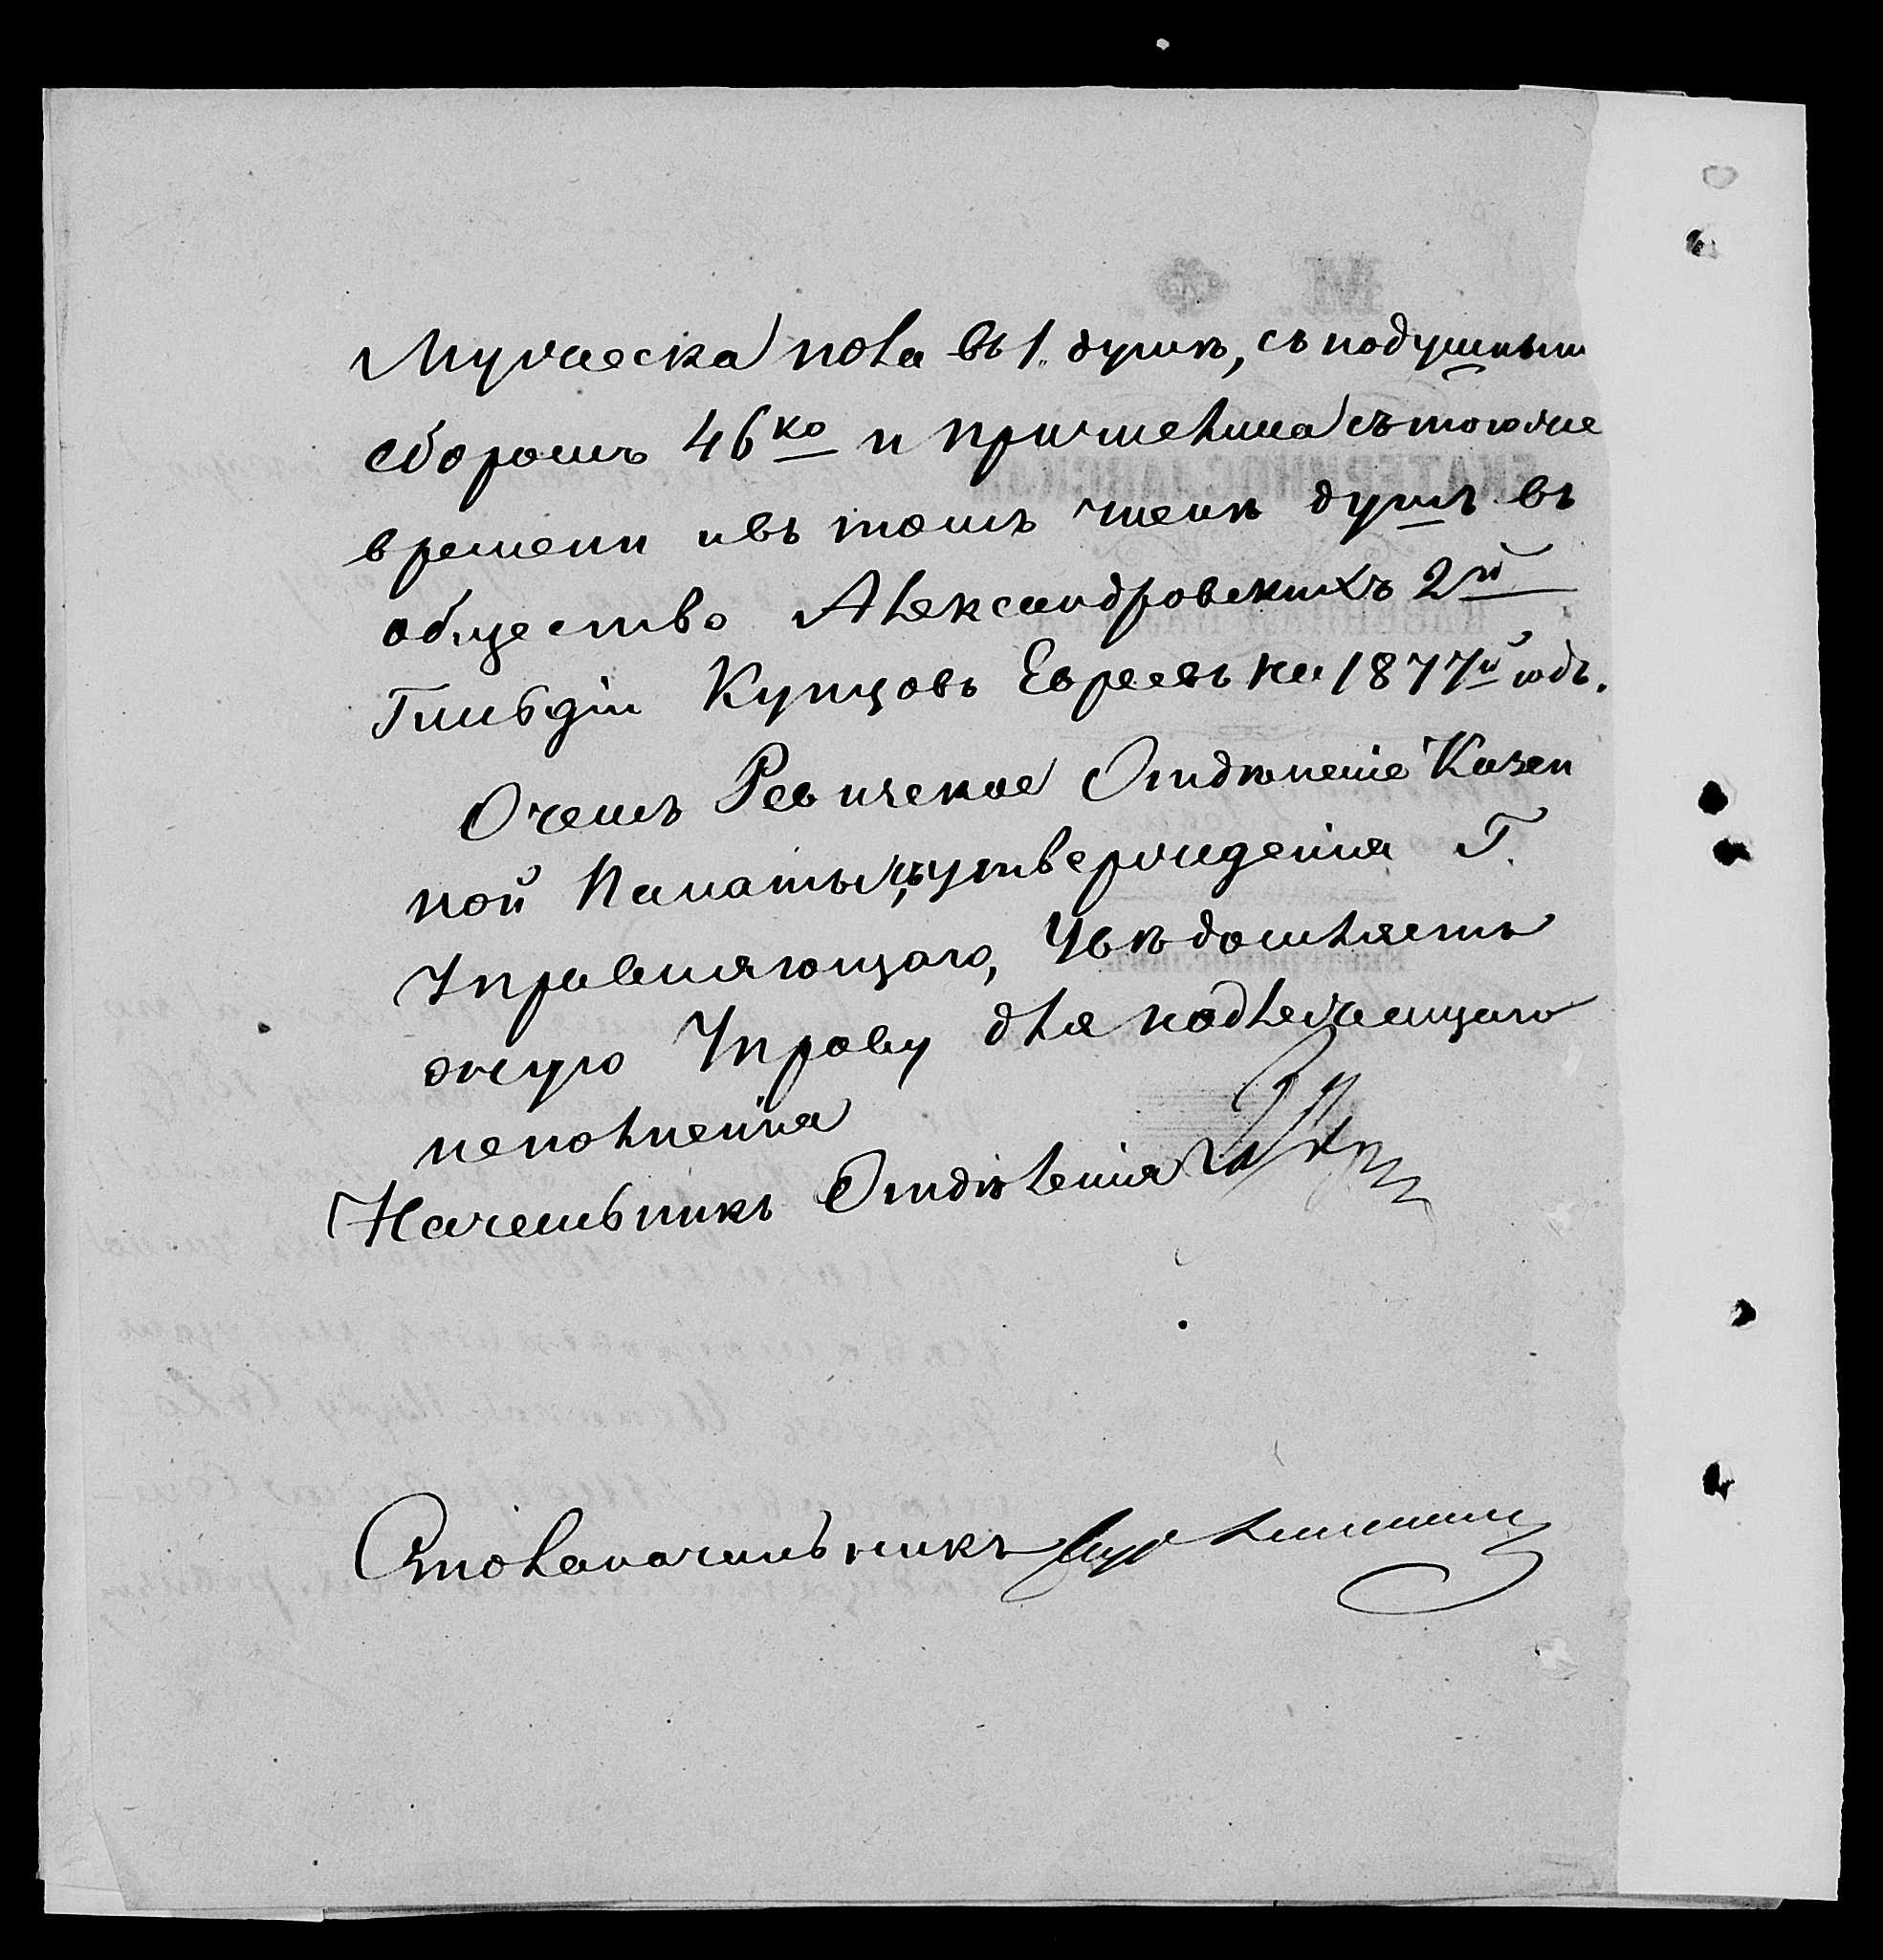 Мужеска пола въ 1. душѣ, съ подушнымъ
сборомъ 46 ко и причислила съ того же
времени и въ томъ числѣ душъ въ
общество Александровскихъ 2й
Гильдіи Купцовъ Евреевъ на 1877й годъ.
О чемъ Ревизское Отдѣленіе Казен
ной Палаты, съ утвержденія Г.
Управляющаго, Увѣдомляетъ
оную Управу для надлежащаго
исполненія
Начальникъ Отдѣленія
Столоначальникъ